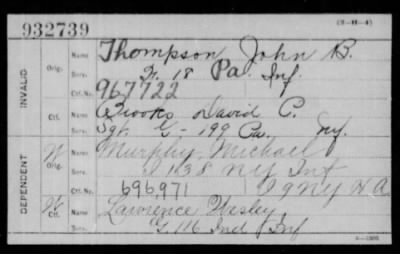 (3-H-4)
932739
INVALID
Orig.
Name
Thompson John B.
Serv.
H. 18 Pa. Inf.
Ctf. No.
967722
Ctf.
Name
Brooks David C.
Serv.
Sgt. G - 199 Pa. Inf.
DEPENDENT
W
Orig.
Name
Murphy Michael
Serv.
138 NY Inf
Ctf. No.
696,971
9 NY H A
W
Ctf.
Name
Lawrence Wesley
Serv.
G, 116 Ind Inf